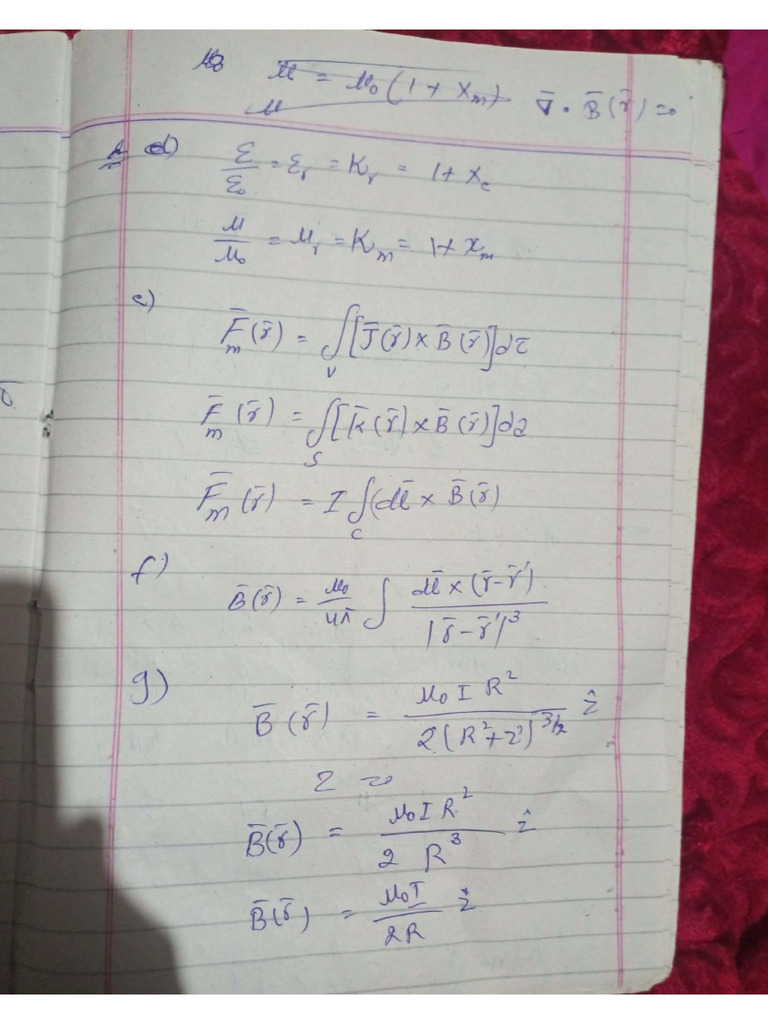 μ = μ₀(1 + χₘ) ∇̄ · B̄(r̄) = 0
d) ε/ε₀ = εᵣ = Kᵣ = 1 + χₑ
μ/μ₀ = μᵣ = Kₘ = 1 + χₘ
e)
F̄ₘ(r̄) = ∫_V [J̄(r̄) × B̄(r̄)] dτ
F̄ₘ(r̄) = ∫_S [K̄(r̄) × B̄(r̄)] da
F̄ₘ(r̄) = I ∫_C (dl̄ × B̄(r̄)
f)
B̄(r̄) = μ₀/4π ∫ dl̄ × (r̄ - r̄′) / |r̄ - r̄′|³
g)
B̄(r̄) = μ₀ I R² / 2(R² + z²)^3/2 ẑ
z = 0
B̄(r̄) = μ₀ I R² / 2 R³ ẑ
B̄(r̄) = μ₀ I / 2R ẑ